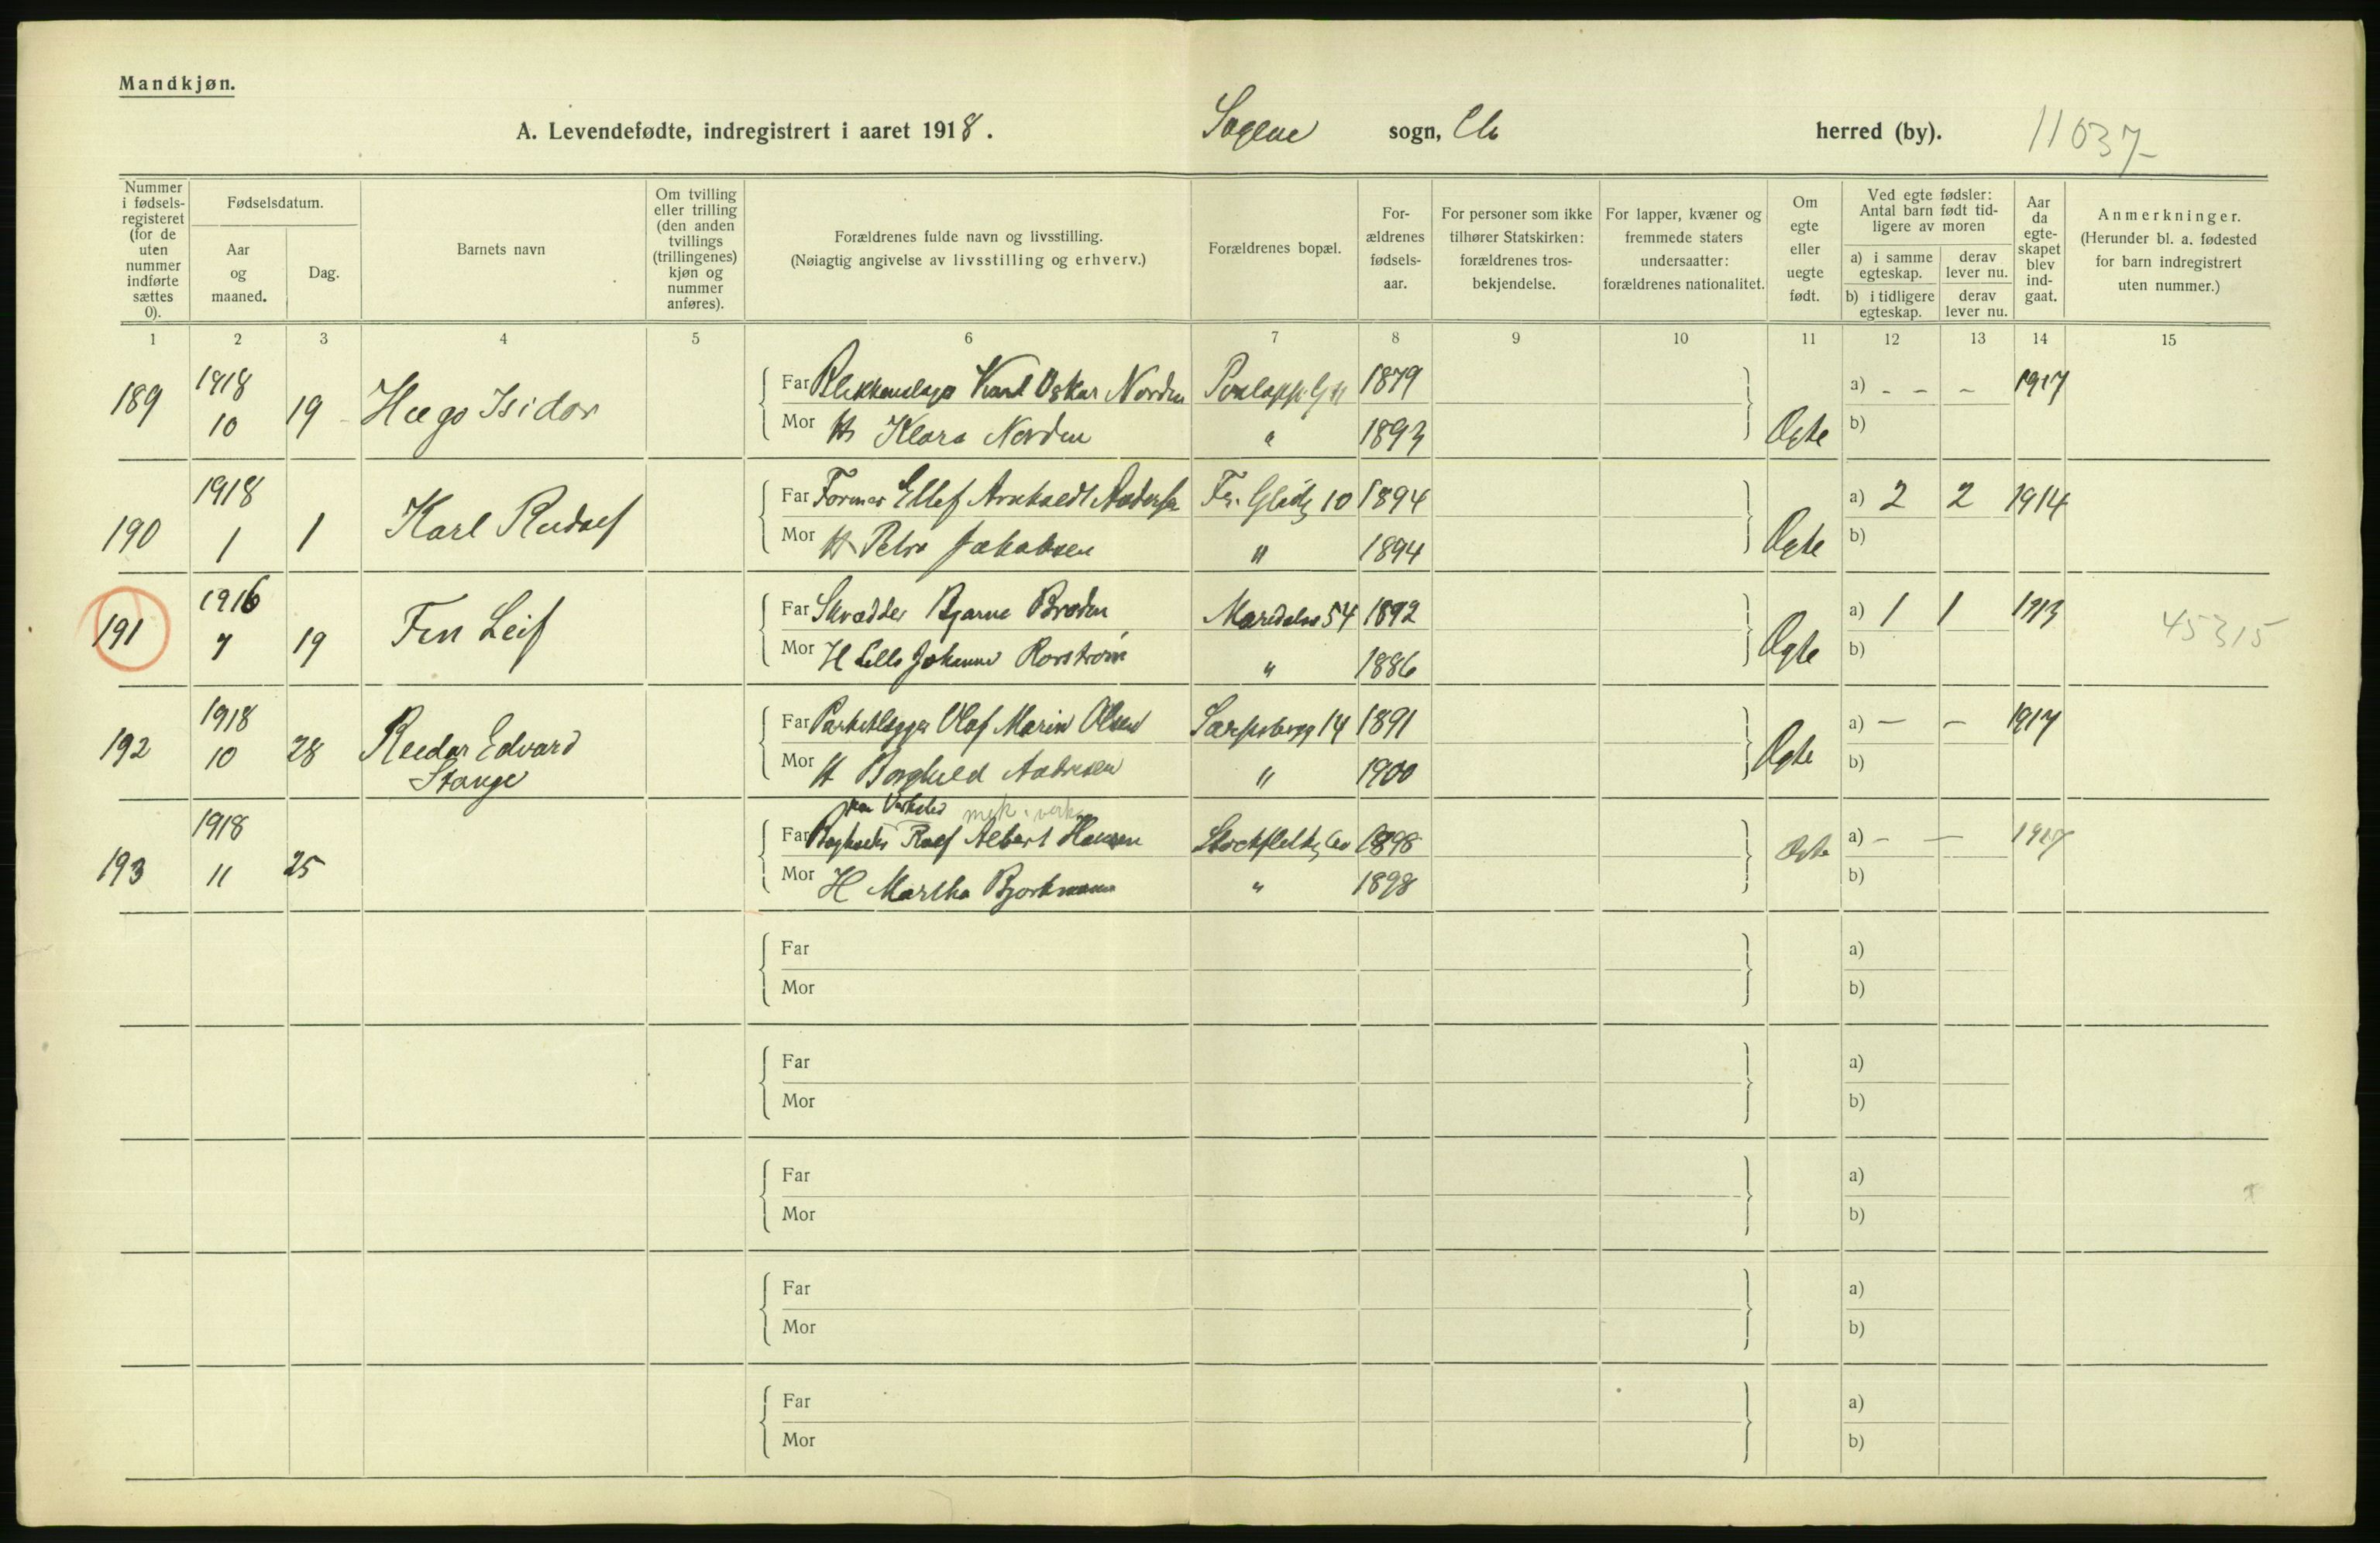 Mandkjøn.
A. Levendefødte, indregistrert i aaret 1918. Sagene sogn, herred (by). 11037
Nummer i fødselsregisteret (for de uten nummer indførte sættes 0).
Fødselsdatum.
Aar og maaned.
Dag.
Barnets navn
Om tvilling eller trilling (den anden tvillings (trillingenes) kjøn og nummer anføres).
Forældrenes fulde navn og livsstilling.
(Nøiagtig angivelse av livsstilling og erhverv.)
Forældrenes bopæl.
For-ældrenes fødsels-aar.
For personer som ikke tilhører Statskirken: forældrenes tros-bekjendelse.
For lapper, kvæner og fremmede staters undersaatter: forældrenes nationalitet.
Om egte eller uegte født.
Ved egte fødsler: Antal barn født tid-ligere av moren
a) i samme egteskap.
derav lever nu.
b) i tidligere egteskap.
derav lever nu.
Aar da egte-skapet blev ind-gaat.
Anmerkninger.
(Herunder bl. a. fødested for barn indregistrert uten nummer.)
1 2 3 4 5 6 7 8 9 10 11 12 13 14 15
189 1918 10 19 Hugo Isidor
Far Blikkenslager Karl Oskar Norden 1879 a) - - - 1917
Mor H Klara Norden " 1893 Ogte b)
190 1918 1 1 Karl Rudolf
Far Former Ellef 10 1894 a) 2 2 1914
Mor H Petra Jakobsen " 1894 Ogte b)
191 1916 7 19 Finn Leif
Far Skrædder Bjarne Broden 54 1892 a) 1 1 1913 45315
Mor H Johanne " 1886 Ogte b)
192 1918 10 28 Reidar Edvard Stange
Far Parketlægger Olaf Marin Olsen Sarpsborgg 14 1891 a) - - 1917
Mor H Borghild Andresen " 1900 Ogte b)
193 1918 11 25
mek. verk
Far Rolf Albert Hansen 1898 a) - - 1917
Mor H Martha " 1898 Ogte b)
Far a)
Mor b)
Far a)
Mor b)
Far a)
Mor b)
Far a)
Mor b)
Far a)
Mor b)